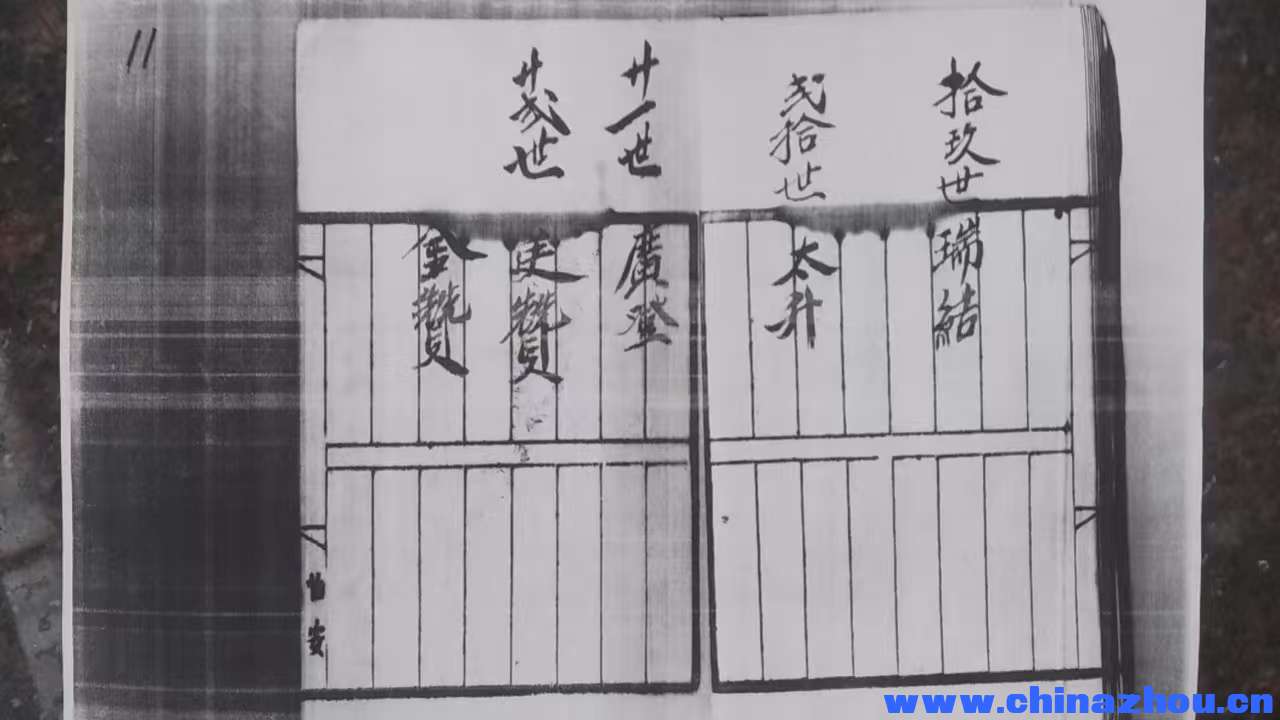 11
拾玖世
瑞結
弍拾世
太升
廿一世
廣登
廿弍世
吏贊
金贊
www.chinazhou.cn